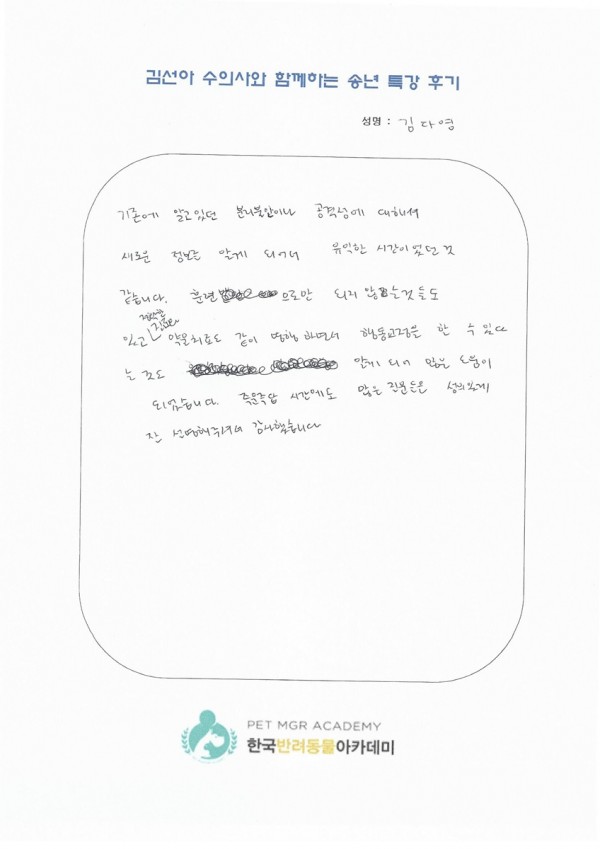 김선아 수의사와 함께하는 송년 특강 후기
성명 : 김다영
기존에 알고있던 분리불안이나 공격성에 대해서
새로운 정보를 알게 되어서 유익한 시간이었던 것
같습니다. 훈련 으로만 되지 않는것들도
정확한 진료
있고 약물치료도 같이 병행하면서 행동교정을 한 수 있다
는 것도 알게 되어 많은 도움이
되었습니다. 즉문즉답 시간에도 많은 질문들을 성의있게
잘 설명해주셔서 감사했습니다
PET MGR ACADEMY
한국반려동물아카데미